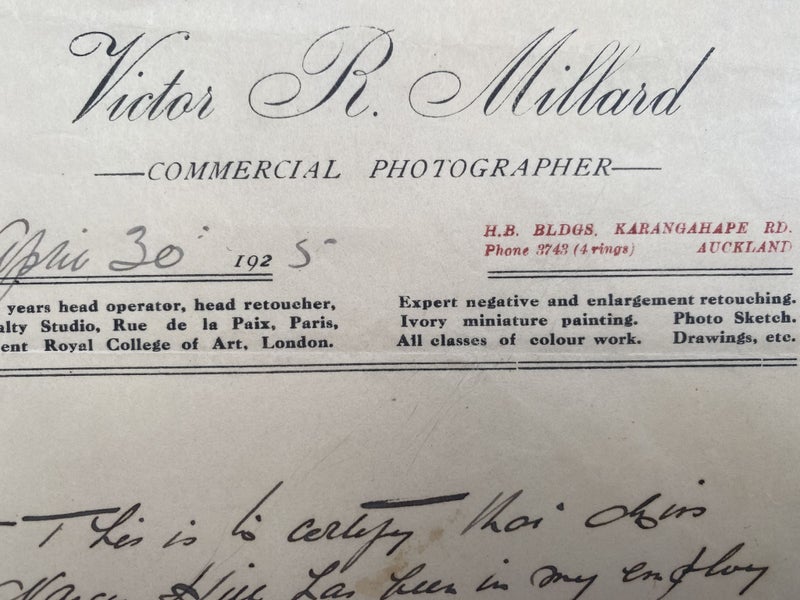 Victor R. Millard
COMMERCIAL PHOTOGRAPHER
April 30 1925
H.B. BLDGS, KARANGAHAPE RD.
Phone 3743 (4 rings) AUCKLAND
years head operator, head retoucher,
alty Studio, Rue de la Paix, Paris,
ent Royal College of Art, London.
Expert negative and enlargement retouching.
Ivory miniature painting. Photo Sketch.
All classes of colour work. Drawings, etc.
This is to certify that Miss
has been in my employ